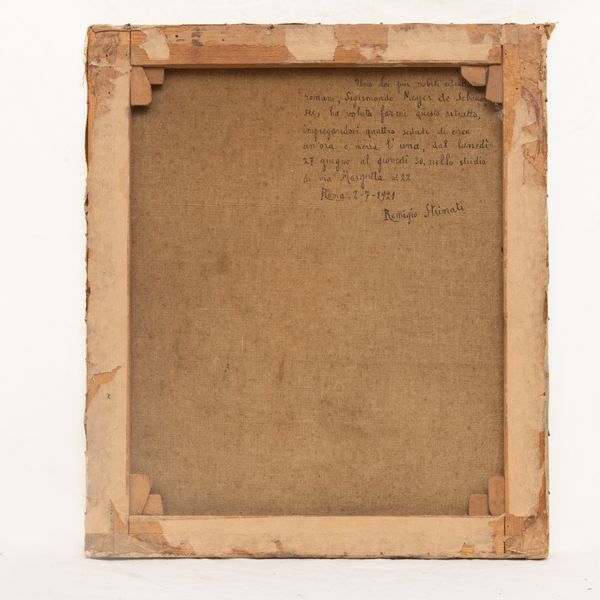 Uno dei più nobili
romani, Sigismondo Meyer de Schauen
see, ha voluto farmi questo ritratto,
impiegandovi quattro sedute di circa
un'ora e mezza l'una, dal lunedì
27 giugno al giovedì 30, nello studio
di via Margutta nº 22
Roma, 2-7-1921
Remigio Strinati